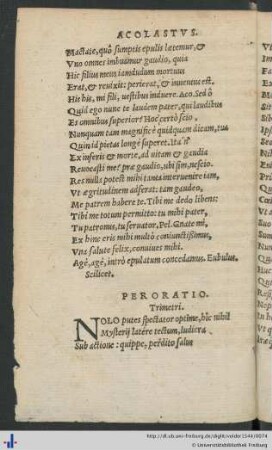 ACOLASTVS.
Mactate, quò sumptis epulis lætemur, &
Vno omnes imbuamur gaudio, quia
Hic filius meus iamdudum mortuus
Erat, & reuixit: perierat, & inuentus est.
His bis, mi fili, uestibus induere. Aco. Sed ô
Quid ego nunc te laudem pater, qui laudibus
Es omnibus superior? Hoc certò scio,
Nunquam tam magnificè quidquam dicam, tua
Quin id pietas longè superet. ita ne
Ex inferis & morte, ad uitam & gaudia
Reuocasti me? præ gaudio, ubi sim, nescio.
Res nulla potest mihi tanta interuenire iam,
Vt ægritudinem adferat: tam gaudeo,
Me patrem habere te. Tibi me dedo libens:
Tibi me totum permitto: tu mihi pater,
Tu patronus, tu seruator. Pel. Gnate mi,
Ex hinc eris mihi multò coniunctissimus,
Vnà salute felix, conuiues mihi.
Agè, agè, intrò epulatum concedamus. Eubulus.
Scilicet.
PERORATIO.
Trimetri.
NOLO putes spectator optime, hîc nihil
Mysterij latére tectum, ludicra
Sub actione: quippe, perdito salus
http://dl.ub.uni-freiburg.de/diglit/
Universitätsbibliothek Freiburg